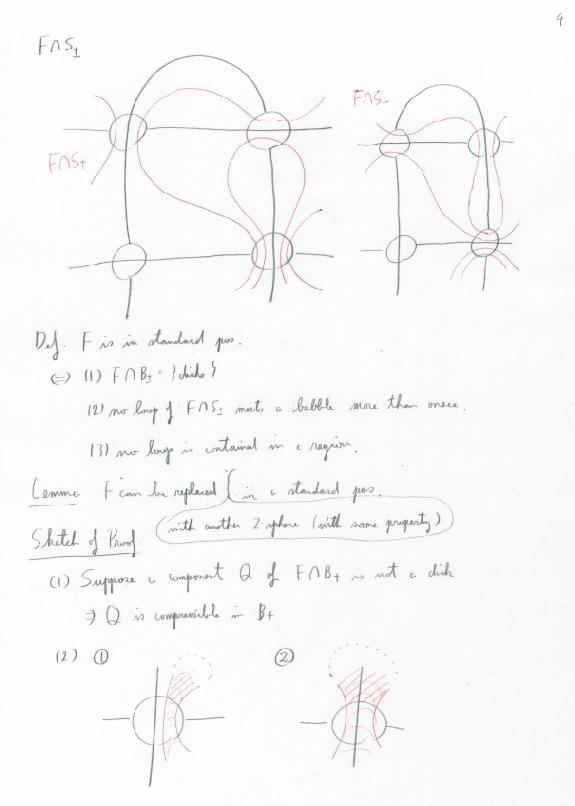 4
F∩S±
F∩S-
F∩S+
Def. F is in standard pos.
⇔ (1) F∩B± = {disks}
(2) no loop of F∩S± meets a babble more than onece.
(3) no loop is contained in a region.
Lemma F can be replaced { in a standard pos.
with another 2-sphere (with same property)
Sketch of Proof.
(1) Suppose a component Q of F∩B+ is not a disk
⇒ Q is compressible in B+
(2) ① ②